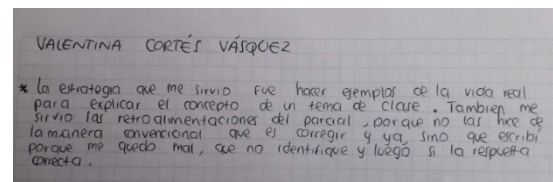 VALENTINA CORTÉS VÁSQUEZ
* la estrategia que me sirvio fue hacer ejemplos de la vida real
para explicar el concepto de un tema de clase. Tambien me
sirvio las retroalimentaciones del parcial, porque no las hice de
la manera convencional que es corregir y ya, sino que escribi
porque me quedo mal, que no identifique y luego si la respuesta
correcta.